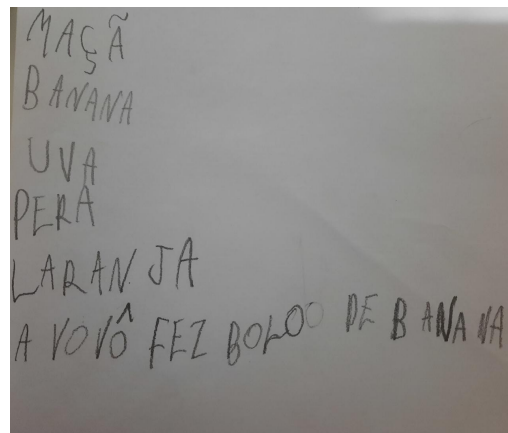 MAÇÃ
BANANA
UVA
PERA
LARANJA
A VOVÔ FEZ BOLOO DE BANANA